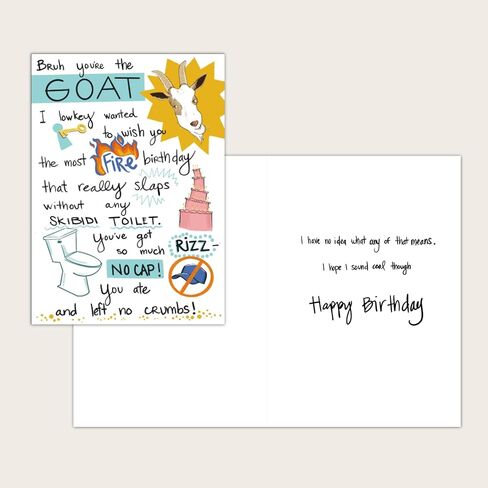 Bruh you're the
GOAT
I lowkey wanted
to wish you
the most Fire birthday
that really slaps
without any
SKIBIDI TOILET.
You've got
so much RIZZ-
NO CAP!
You ate
and left no crumbs!
I have no idea what any of that means.
I hope I sound cool though
Happy Birthday